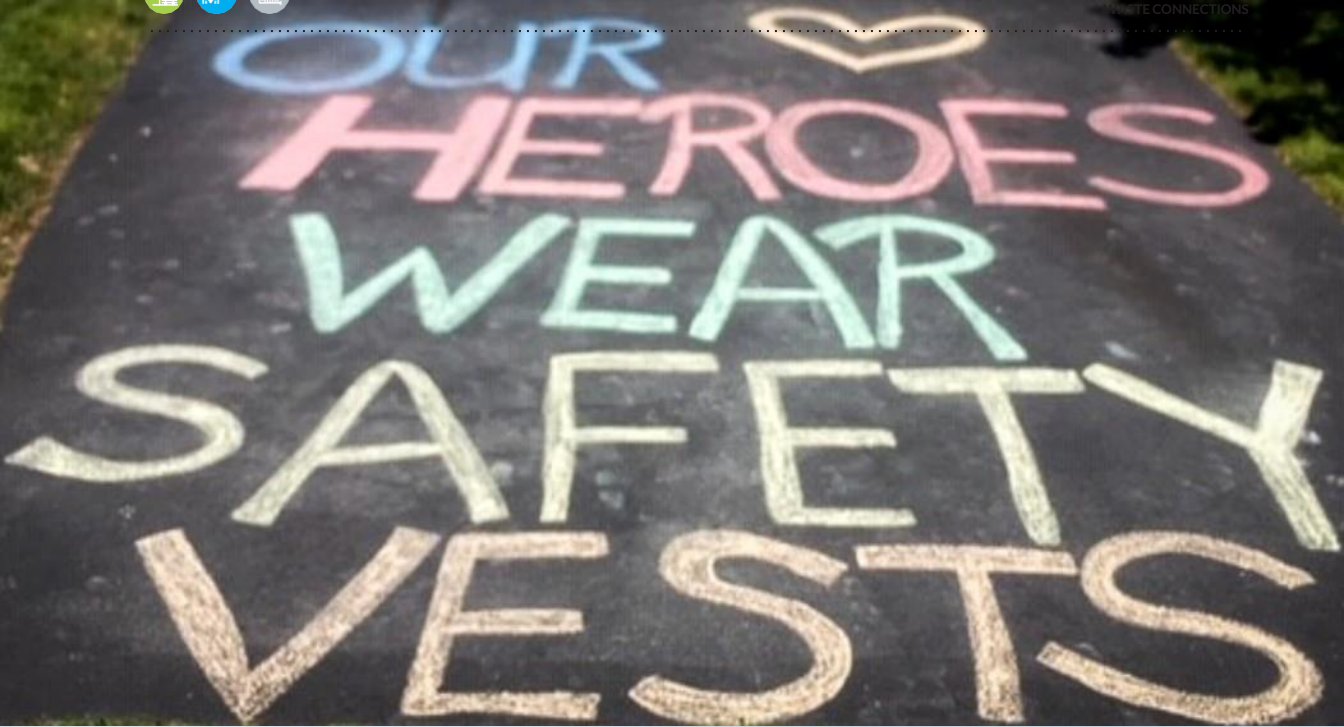 WASTE CONNECTIONS
OUR
HEROES
WEAR
SAFETY
VESTS